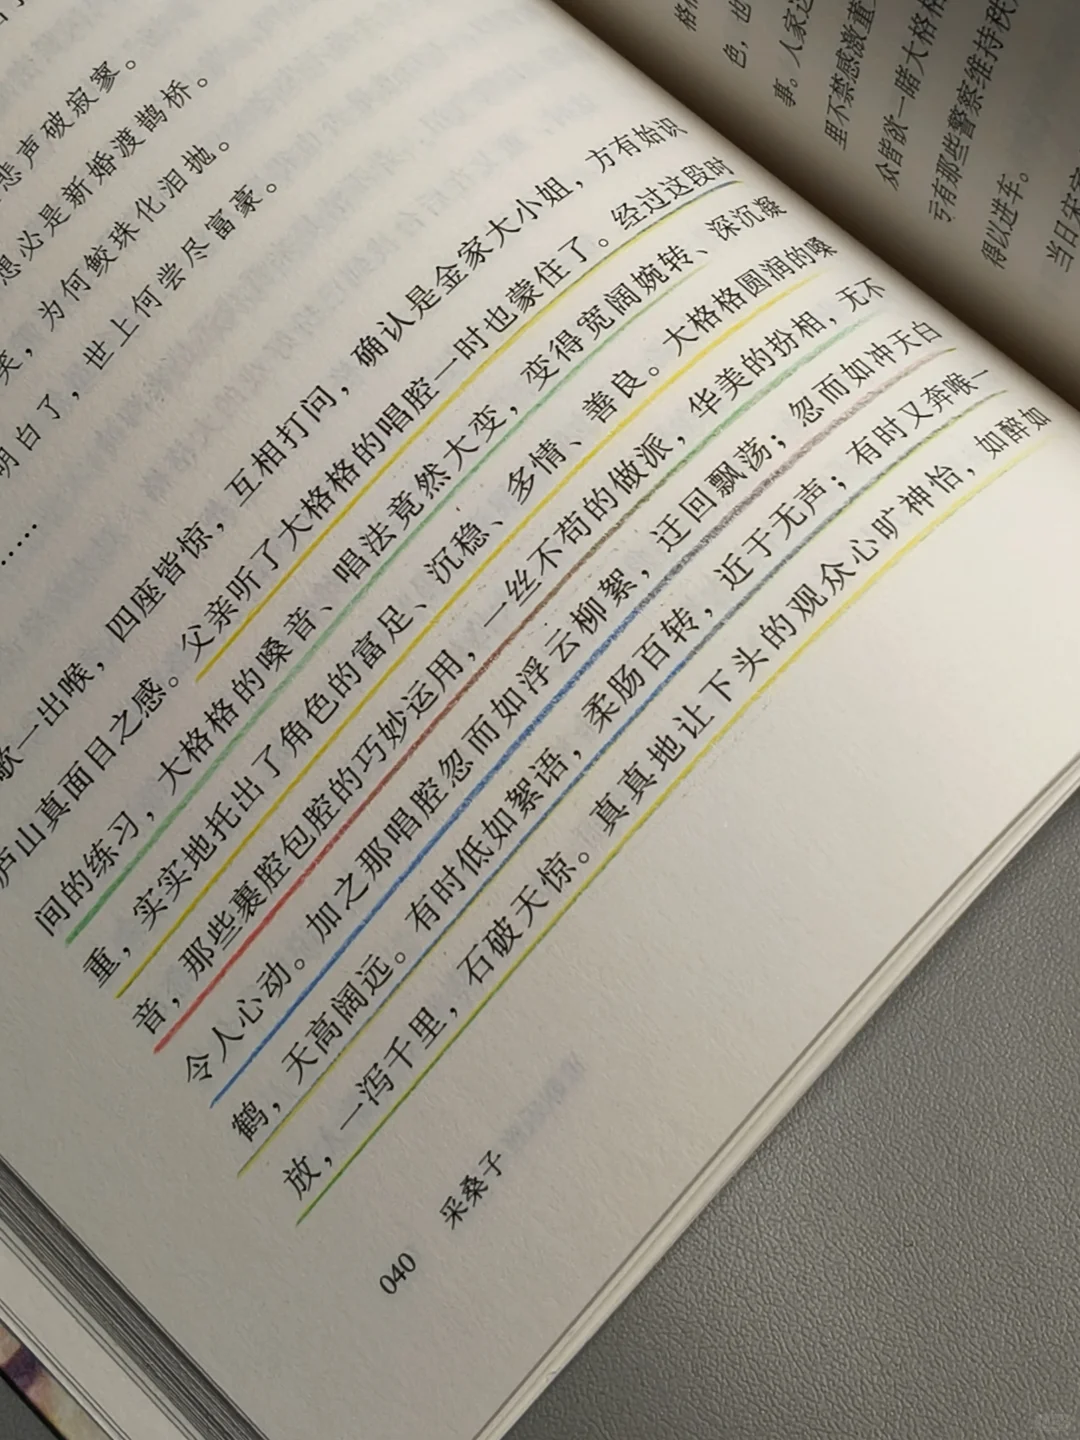 悲声破寂寥。
想必是新婚渡鹊桥。
笑，为何鲛珠化泪抛。
明白了，世上何尝尽富豪。
……
歌一出喉，四座皆惊，互相打问，确认是金家大小姐，方有始识
庐山真面目之感。父亲听了大格格的唱腔一时也蒙住了。经过这段时
间的练习，大格格的嗓音、唱法竟然大变，变得宽阔婉转、深沉凝
重，实实地托出了角色的富足、沉稳、多情、善良。大格格圆润的嗓
音，那些裹腔包腔的巧妙运用，一丝不苟的做派，华美的扮相，无不
令人心动。加之那唱腔忽而如浮云柳絮，迂回飘荡；忽而如冲天白
鹤，天高阔远。有时低如絮语，柔肠百转，近于无声；有时又奔喉一
放，一泻千里，石破天惊。真真地让下头的观众心旷神怡，如醉如
采桑子
040
色，也
事。人家这
里不禁感激董
众皆欲一睹大格格
亏有那些警察维持秩
得以进车。
当日宋家